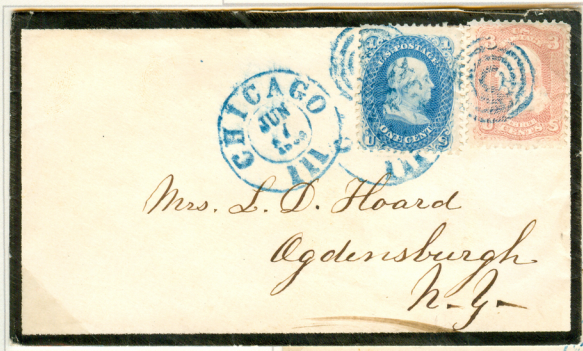 CHICAGO
JUN
7
ILL
1 U.S. POSTAGE 1
ONE CENT
U S
3 3
CENTS
U S
Mrs. L. D. Hoard
Ogdensburgh
N-Y-